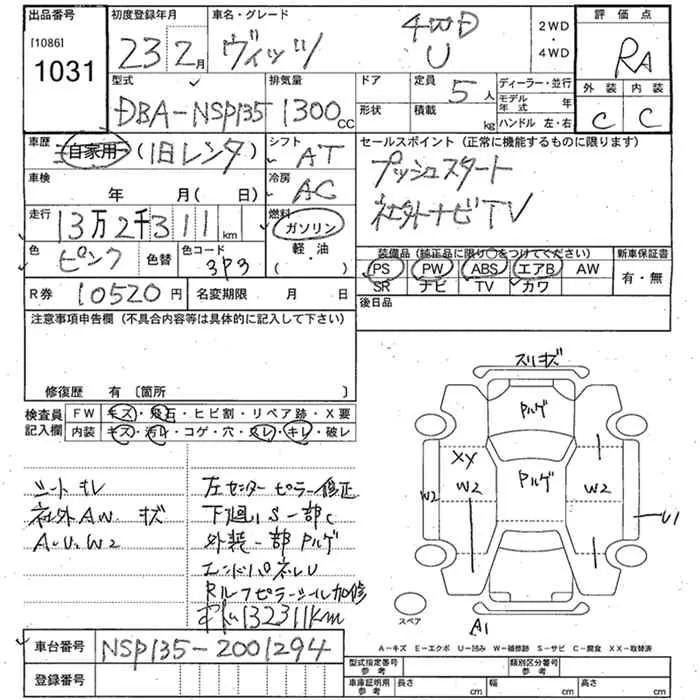 出品番号
[1086]
1031
初度登録年月
23 年 2 月
車名・グレード
ヴィッツ
4WD
U
2WD
・
4WD
評価点
RA
外装 内装
C C
型式
DBA-NSP135
排気量
1300 cc
ドア
形状
定員
5 人
積載
kg
ディーラー・並行
モデル年式 年
ハンドル 左・右
車歴
自家用 (旧レンタ)
シフト
AT
車検
年 月 ( 日)
冷房
AC
走行
13万2千311 km
燃料
ガソリン
軽・油
( )
色
ピンク
色替
色コード
3P3
セールスポイント (正常に機能するものに限ります)
プッシュスタート
社外ナビTV
装備品 (純正品に限り○をつけてください)
新車保証書
PS PW ABS エアB AW
SR ナビ TV カワ
有・無
後日品
R券 10520 円 名変期限 月 日
注意事項申告欄 (不具合内容等は具体的に記入して下さい)
修復歴 有 〔箇所 〕
検査員記入欄
FW キズ・飛石・ヒビ割・リペア跡・X要
内装 キズ・汚レ・コゲ・穴・スレ・キレ・破レ
シートキレ
社外AW.キズ
A・U・W2
左センターピラー修正
下廻りS一部C
外装一部Pハゲ
エンドパネルU
Rルーフピラーシール加修
132311km
スリキズ
Pハゲ
XX
W2
W2
Pハゲ
W2
U1
A1
スペア
A-キズ E-エクボ U-凹み W-補修跡 S-サビ C-腐食 XX-取替済
車台番号 NSP135-2001294
登録番号
型式指定番号 参考
類別区分番号 参考
車庫証明用 参考 長さ cm 幅 cm 高さ cm